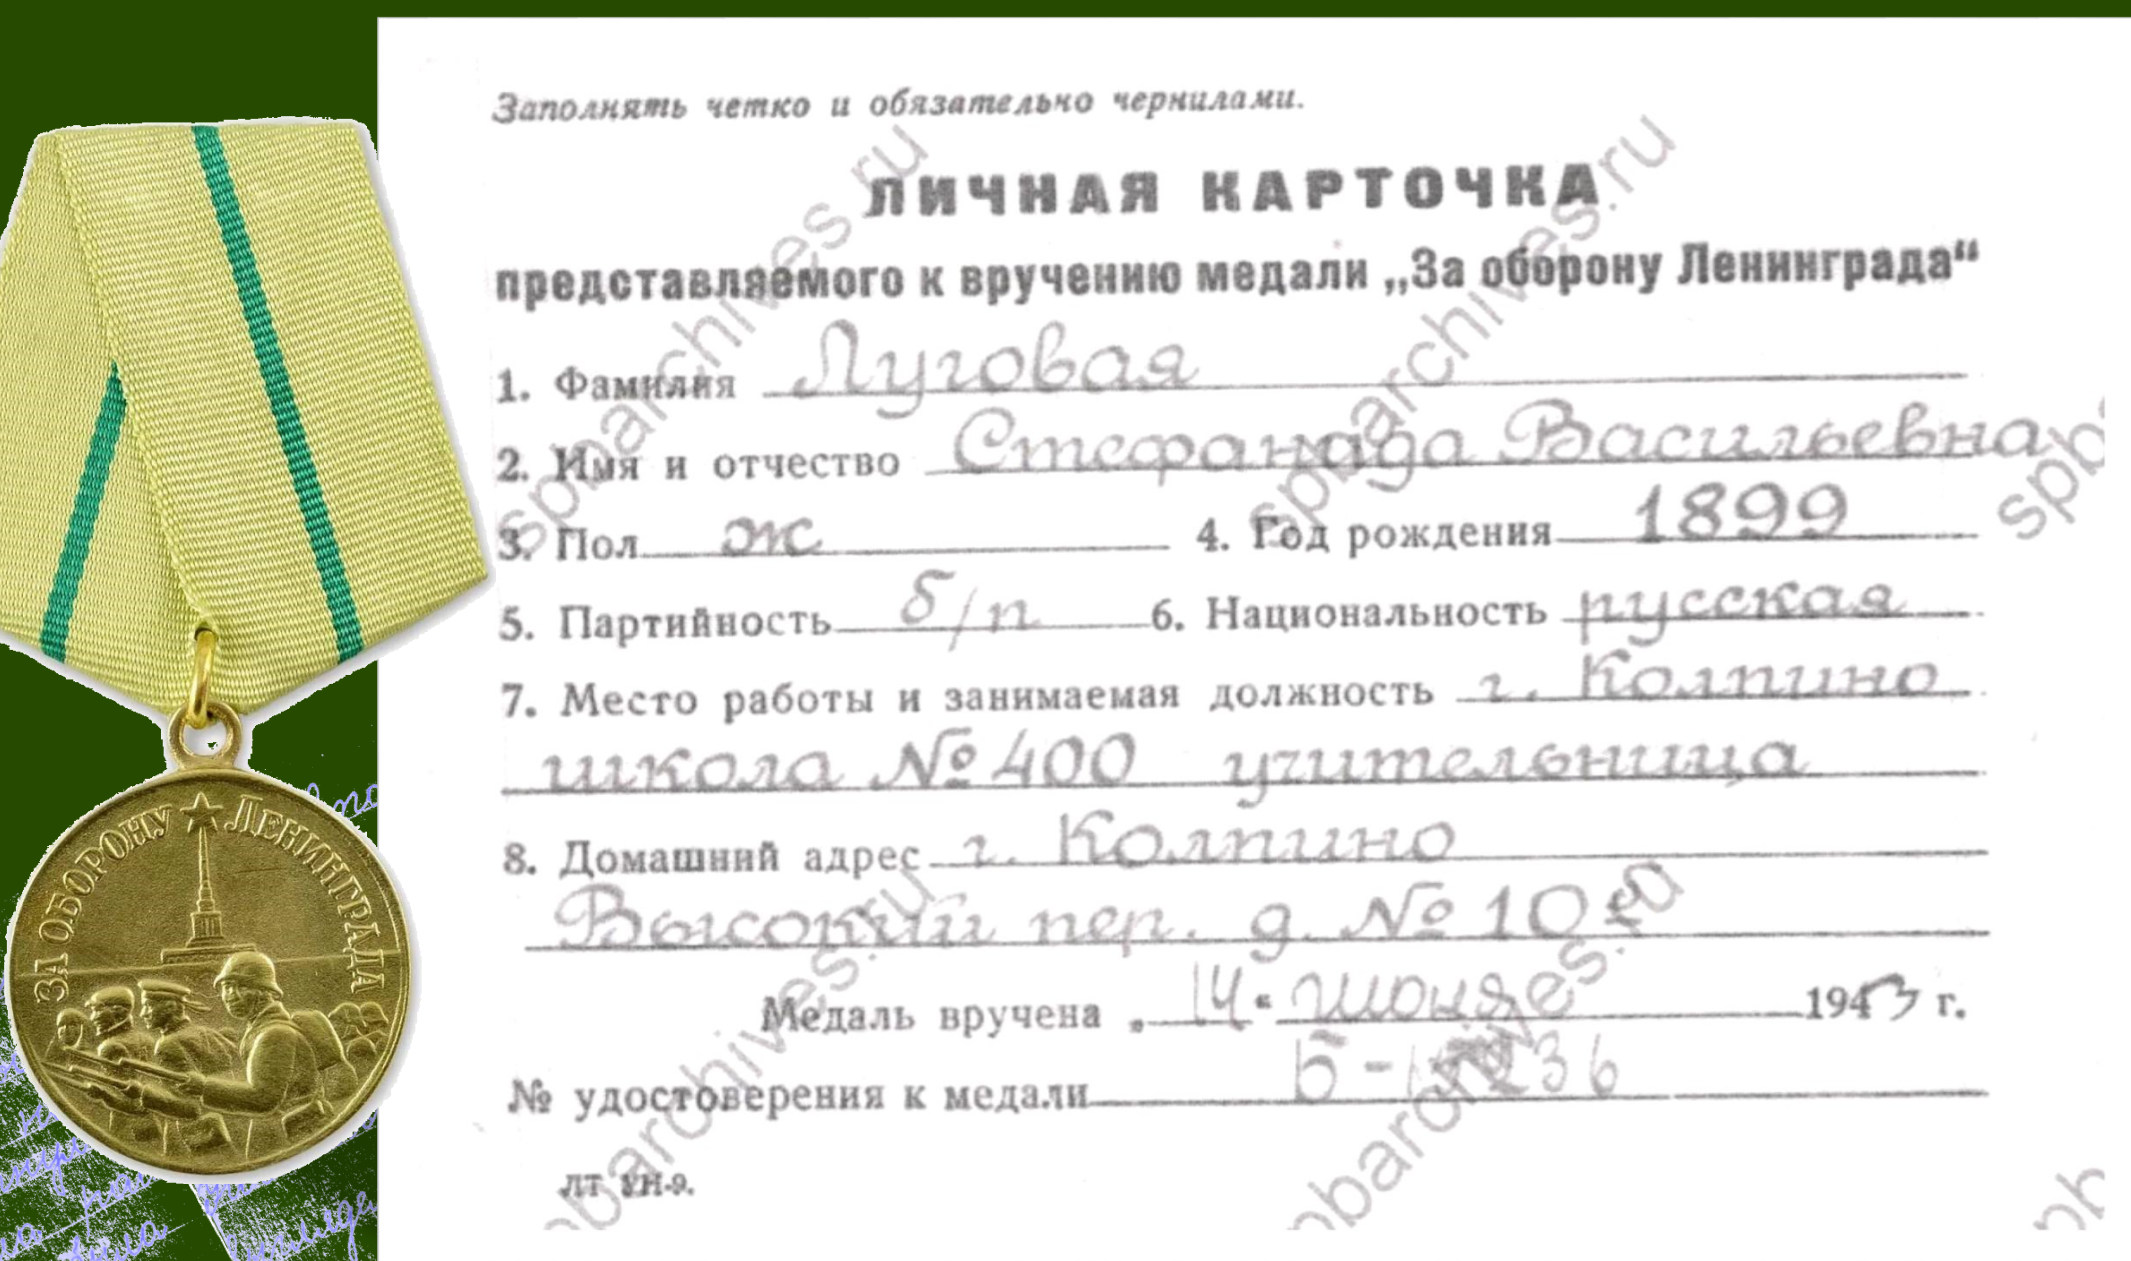 Заполнять четко и обязательно чернилами.
ЛИЧНАЯ КАРТОЧКА
представляемого к вручению медали „За оборону Ленинграда“
1. Фамилия Луговая
2. Имя и отчество Стефанида Васильевна
3. Пол ж 4. Год рождения 1899
5. Партийность б/п 6. Национальность русская
7. Место работы и занимаемая должность г. Колпино
школа № 400 учительница
8. Домашний адрес г. Колпино
Высокий пер. д. № 10
Медаль вручена „14“ июня 1943 г.
№ удостоверения к медали
ЛТ УН-9.
ЗА ОБОРОНУ ЛЕНИНГРАДА
spbarchives.ru
spbarchives.ru